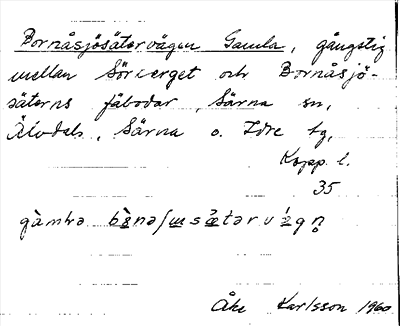 Bornåsjösätervägen Gamla, gångstig
mellan Sörverget och Bornåsjö-
säterns fäbodar, Särna sn,
Älvdals, Särna o. Idre tg,
Kopp. l.
35
Åke Karlsson 1960